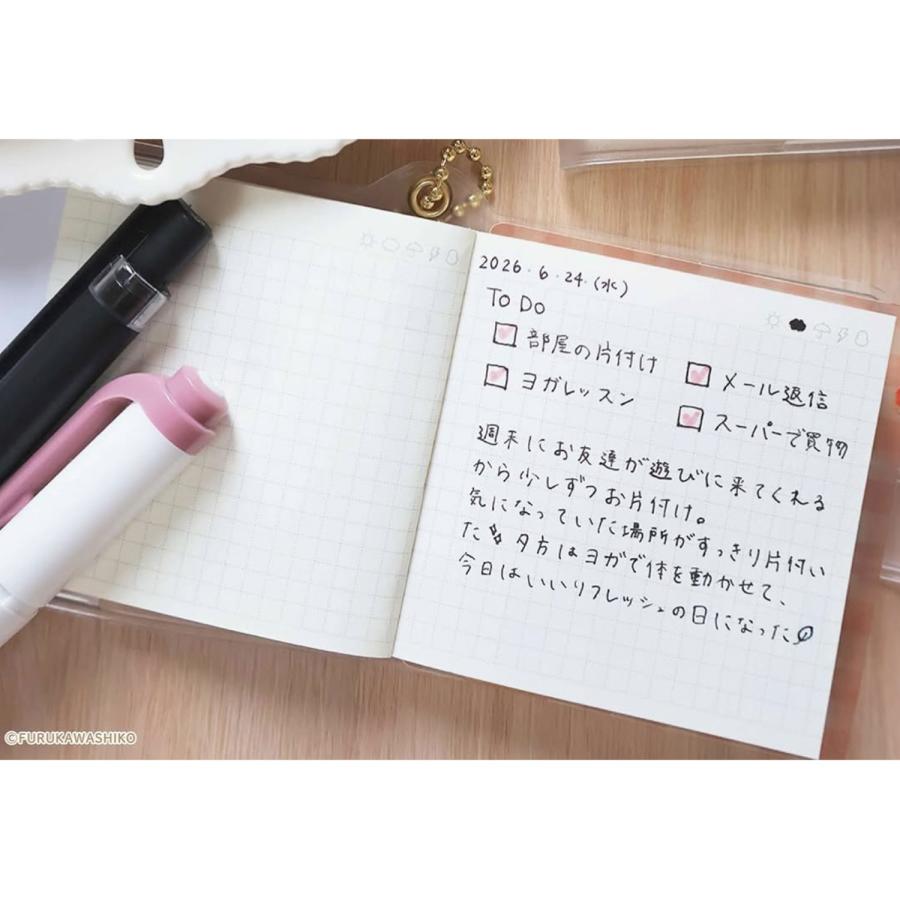 2026.6.24.(水)
To Do
部屋の片付け
メール返信
ヨガレッスン
スーパーで買物
週末にお友達が遊びに来てくれる
から少しずつお片付け。
気になっていた場所がすっきり片付い
た 夕方はヨガで体を動かせて、
今日はいいリフレッシュの日になった
©FURUKAWASHIKO